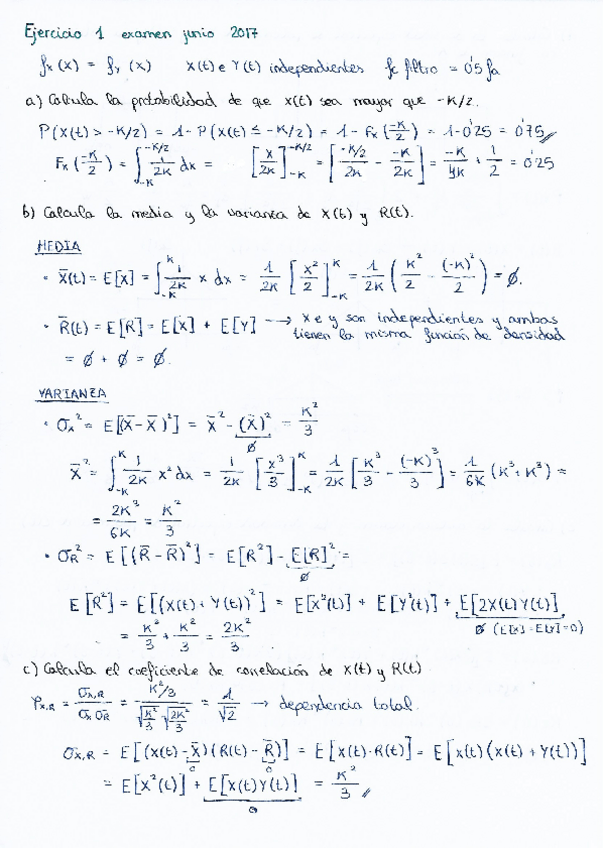 Ejercicio 1 examen junio 2017
fx (x) = fy (x) X(t) e Y(t) independientes fc filtro = 0'5 fa
a) Calcula la probabilidad de que X(t) sea mayor que -K/2.
P(X(t) > -K/2) = 1 - P(X(t) ≤ -K/2) = 1 - Fx(-K/2) = 1 - 0'25 = 0'75
Fx(-K/2) = ∫_{-K}^{-K/2} 1/2K dx = [x/2K]_{-K}^{-K/2} = [-K/2/2K - -K/2K] = -K/4K + 1/2 = 0'25
b) Calcula la media y la varianza de X(t) y R(t).
MEDIA
· X̄(t) = E[X] = ∫_{-K}^{K} 1/2K x dx = 1/2K [x²/2]_{-K}^{K} = 1/2K (K²/2 - (-K)²/2) = ∅.
· R̄(t) = E[R] = E[X] + E[Y] → x e y son independientes y ambas
tienen la misma función de densidad
= ∅ + ∅ = ∅.
VARIANZA
· σx² = E[(X - X̄)²] = X̄² - (X̄)² = K²/3
∅
X̄² = ∫_{-K}^{K} 1/2K x² dx = 1/2K [x³/3]_{-K}^{K} = 1/2K [K³/3 - (-K)³/3] = 1/6K (K³ + K³) =
= 2K³/6K = K²/3
· σR² = E[(R̄ - R̄)²] = E[R²] - E[R]² =
∅
E[R²] = E[(X(t) + Y(t))²] = E[X²(t)] + E[Y²(t)] + E[2X(t)Y(t)]
∅ (E[x] = E[y] = 0)
= K²/3 + K²/3 = 2K²/3
c) Calcula el coeficiente de correlación de X(t) y R(t)
ρx,R = σx,R/σx σR = K²/3/√K²/3 √2K²/3 = 1/√2 → dependencia total.
σx,R = E[(X(t) - X̄)(R(t) - R̄)] = E[X(t)·R(t)] = E[X(t)(X(t) + Y(t))]
0 0
= E[X²(t)] + E[X(t)Y(t)] = K²/3
0